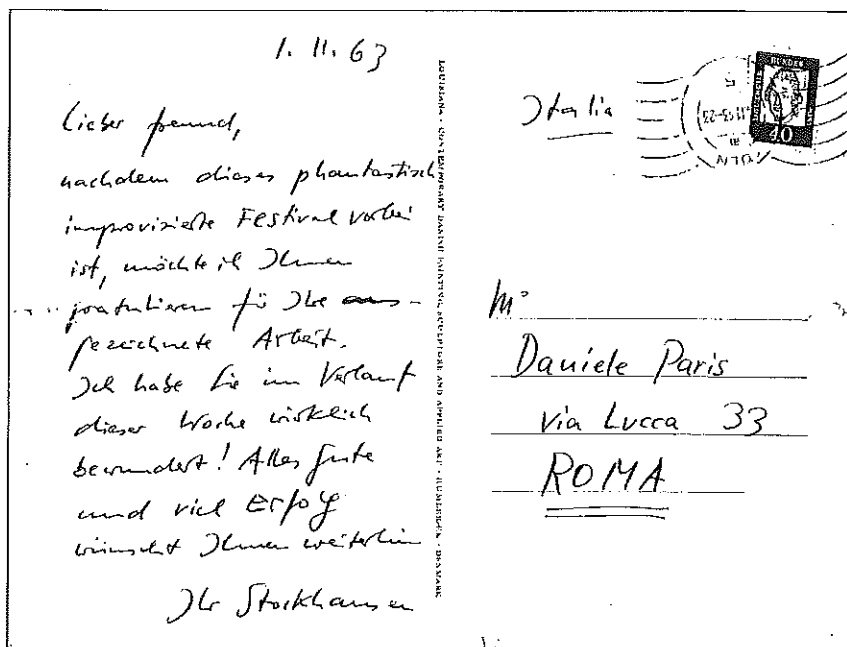 1. 11. 63
Lieber Freund,
nachdem dieses phantastisch
improvisierte Festival vorbei
ist, möchte ich Ihnen
gratulieren für Ihre aus-
gezeichnete Arbeit.
Ich habe Sie im Verlauf
dieser Woche wirklich
bewundert! Alles Gute
und viel Erfolg
wünscht Ihnen weiterhin
Ihr Stockhausen
LOUISIANA · CONTEMPORARY DANISH PAINTING, SCULPTURE AND APPLIED ART · HUMLEBÆK · DENMARK
Italia
KÖLN
40
M°
Daniele Paris
via Lucca 33
ROMA